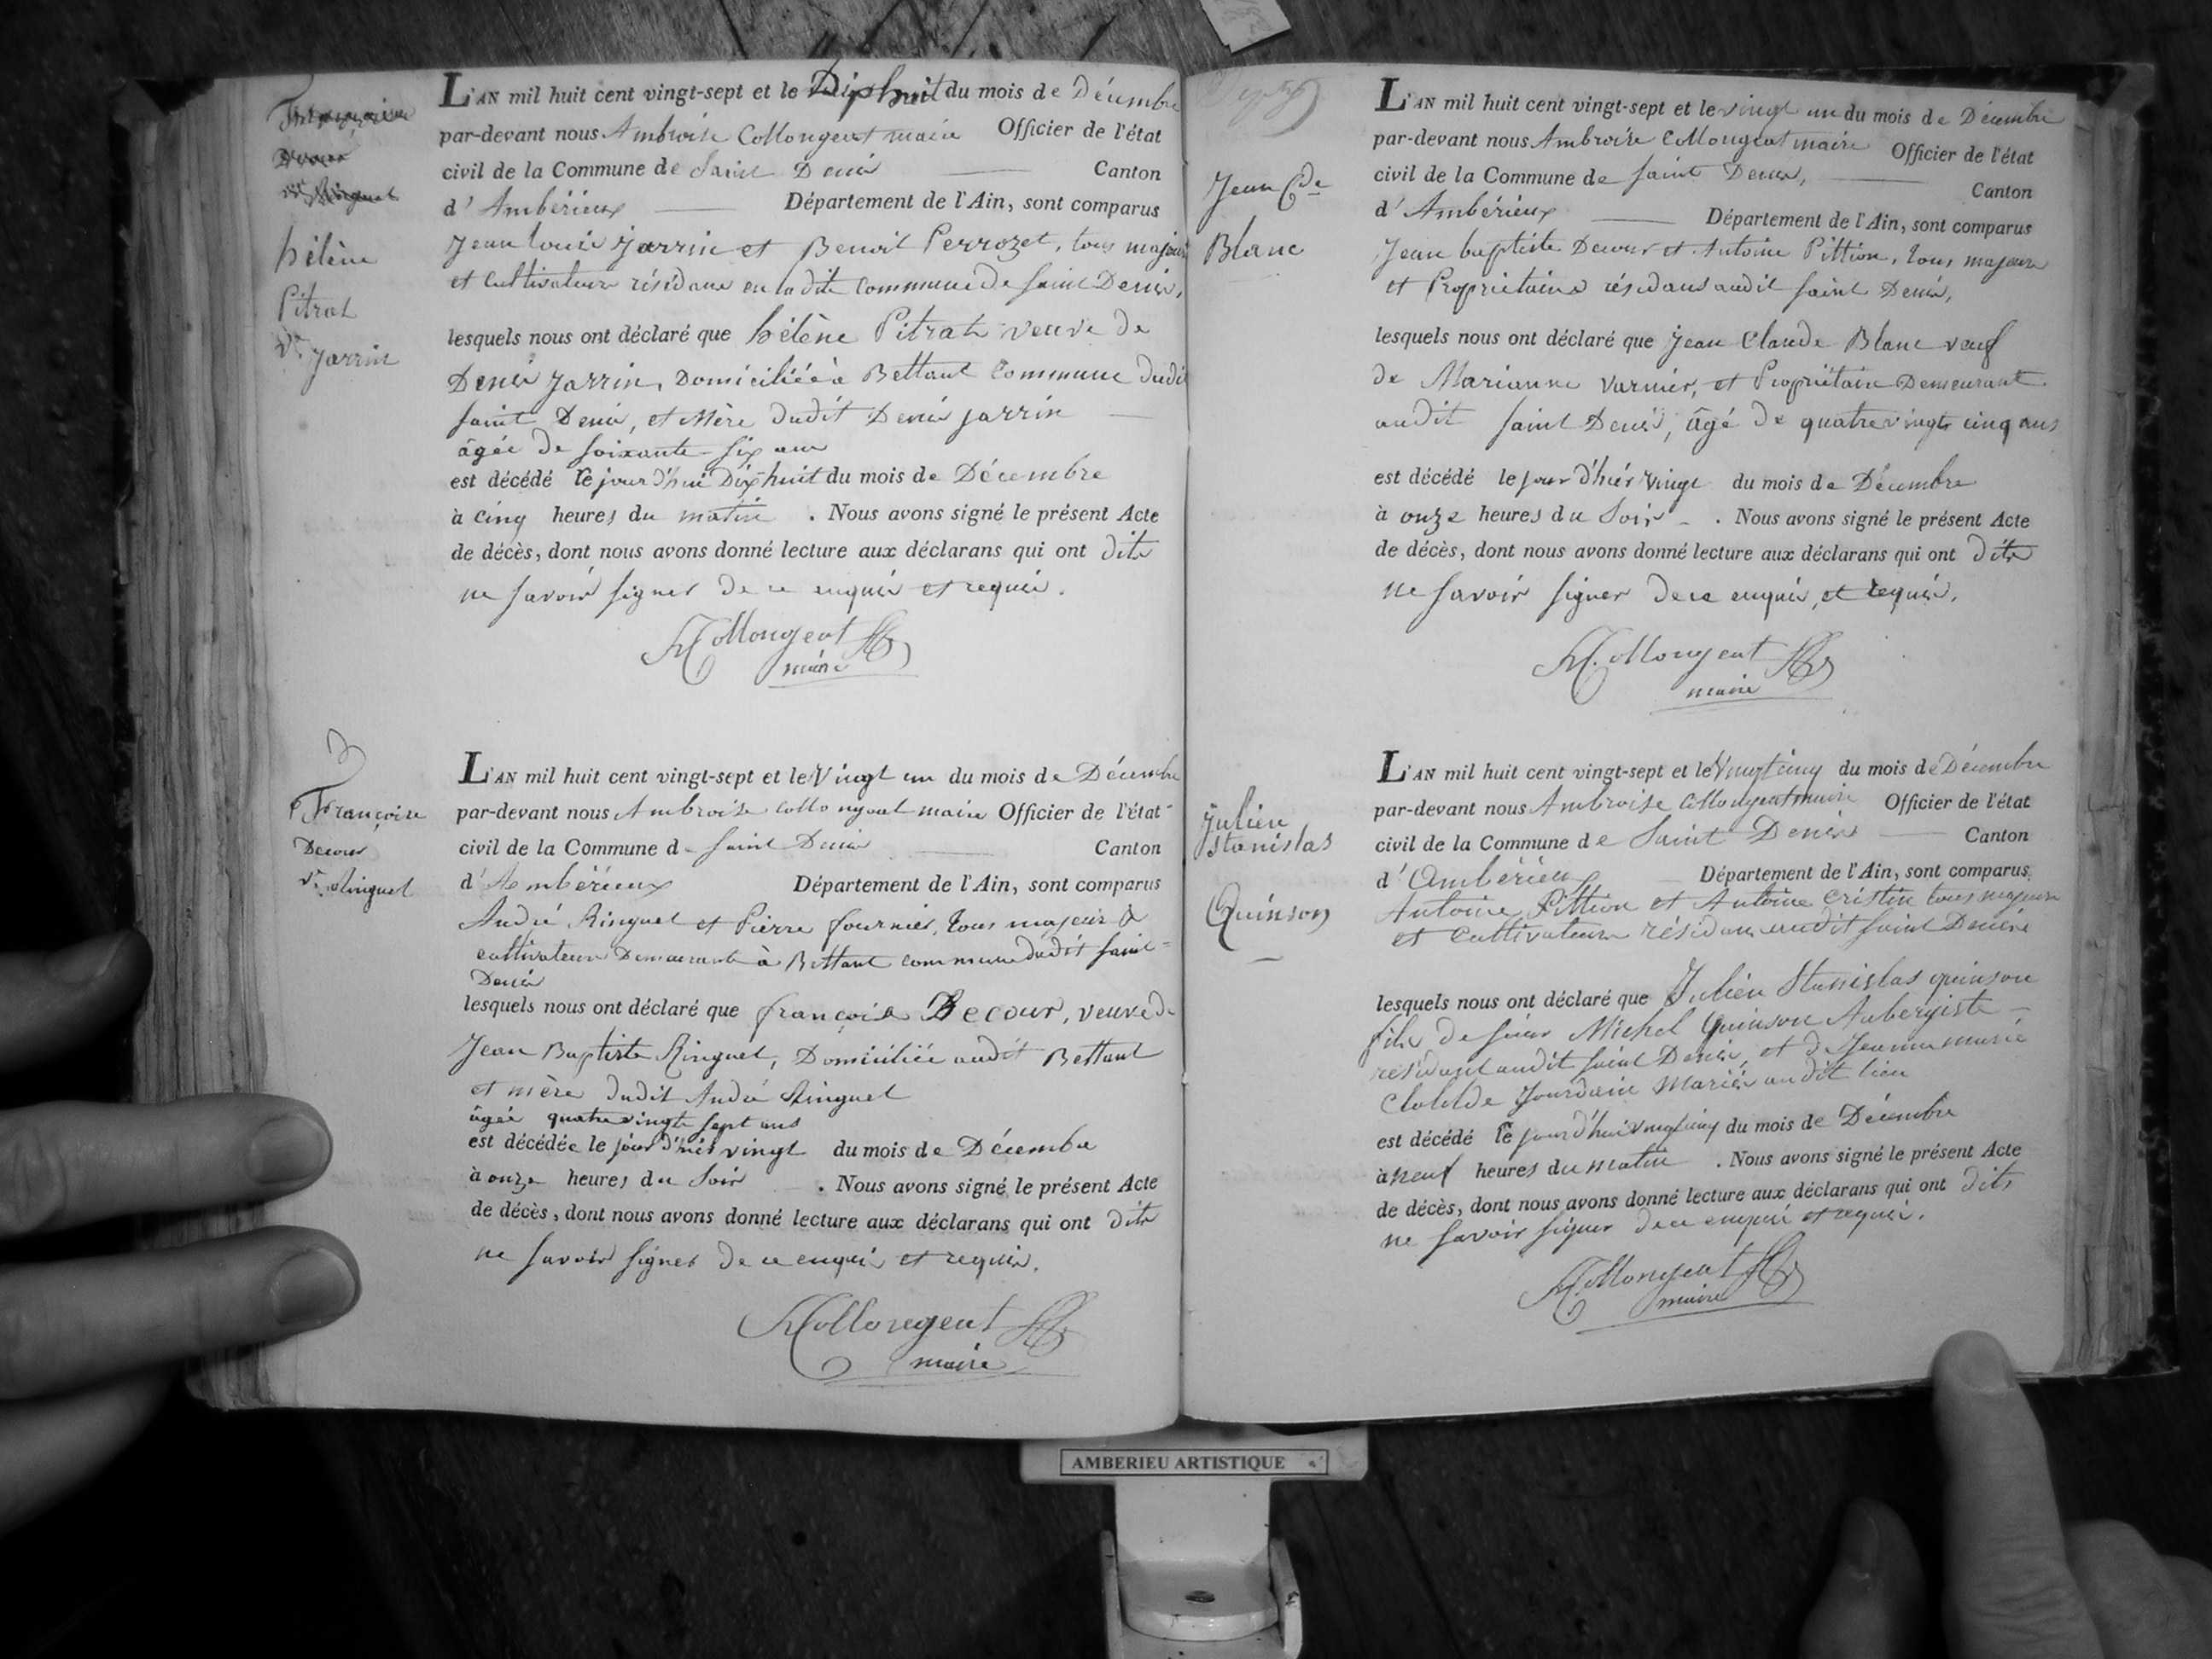 hélène
Pitrat
Ve Jarrin
L'AN mil huit cent vingt-sept et le Dix huit du mois de Décembre
par-devant nous Ambroise Collongeat maire Officier de l'état
civil de la Commune de Saint Denis Canton
d' Ambérieux Département de l'Ain, sont comparus
Jean louis Jarrin et Benoit Perrozet, tous majeurs
et cultivateurs résidans en la dite commune de Saint Denis,
lesquels nous ont déclaré que hélène Pitrat veuve de
Denis Jarrin, Domiciliée à Bettant Commune dudit
Saint Denis, et Mère dudit Denis Jarrin
âgée de soixante-six ans
est décédé le jourd'hui Dix-huit du mois de Décembre
à cinq heures du matin . Nous avons signé le présent Acte
de décès, dont nous avons donné lecture aux déclarans qui ont dits
ne savoir signer de ce enquis et requis.
Collongeat
maire
Françoise
Decour
Ve Ringuet
L'AN mil huit cent vingt-sept et le Vingt un du mois de Décembre
par-devant nous Ambroise Collongeat maire Officier de l'état
civil de la Commune d Saint Denis Canton
d' Ambérieux Département de l'Ain, sont comparus
André Ringuet et Pierre fournier, tous majeurs &
cultivateurs Demeurants à Bettant commune dudit Saint=
Denis
lesquels nous ont déclaré que françoise Decour, veuve de
Jean Baptiste Ringuet, Domiciliée audit Bettant
et mère dudit André Ringuet
âgée quatre vingts sept ans
est décédée le jour d'hier vingt du mois de Décembre
à onze heures du Soir . Nous avons signé le présent Acte
de décès, dont nous avons donné lecture aux déclarans qui ont dits
ne savoir signer de ce enquis et requis.
Collongeat
maire
Jean Cde
Blanc
L'AN mil huit cent vingt-sept et le vingt un du mois de Décembre
par-devant nous Ambroise Collongeat maire Officier de l'état
civil de la Commune de Saint Denis, Canton
d' Ambérieux Département de l'Ain, sont comparus
Jean baptiste Decour et Antoine Pittion, tous majeurs
et Propriétaires résidans audit Saint Denis,
lesquels nous ont déclaré que Jean Claude Blanc veuf
de Marianne Varnier, et Propriétaire Demeurant
audit Saint Denis, âgé de quatre vingts cinq ans
est décédé le jour d'hier vingt du mois de Décembre
à onze heures du Soir . Nous avons signé le présent Acte
de décès, dont nous avons donné lecture aux déclarans qui ont dits
ne savoir signer de ce enquis, et requis.
Collongeat
maire
Julien
Stanislas
Quinson
L'AN mil huit cent vingt-sept et le Vingt cinq du mois de Décembre
par-devant nous Ambroise Collongeat maire Officier de l'état
civil de la Commune de Saint Denis Canton
d' Ambérieux Département de l'Ain, sont comparus
Antoine Pittion et Antoine Cristin tous majeurs
et cultivateurs résidans audit Saint Denis
lesquels nous ont déclaré que Julien Stanislas quinson
fils de sieur Michel Quinson Aubergiste
résidant audit Saint Denis, et de Jeanne marie
Clotilde Jourdain Mariés audit lieu
est décédé le jourd'hui vingt cinq du mois de Décembre
à neuf heures du matin . Nous avons signé le présent Acte
de décès, dont nous avons donné lecture aux déclarans qui ont dits
ne savoir signer de ce enquis et requis.
Collongeat
maire
AMBERIEU ARTISTIQUE